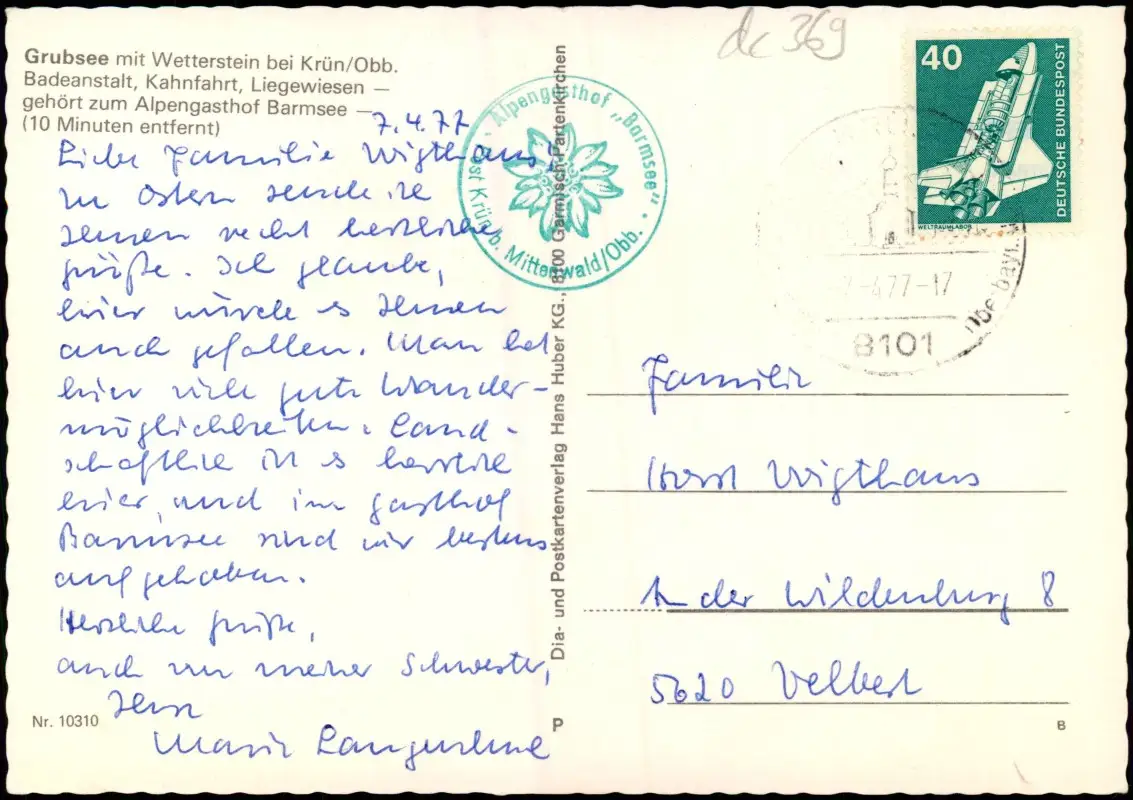 Grubsee mit Wetterstein bei Krün/Obb.
Badeanstalt, Kahnfahrt, Liegewiesen —
gehört zum Alpengasthof Barmsee —
(10 Minuten entfernt)
7.4.77
Liebe Familie Wigthaus!
Zu Ostern sende ich
Ihnen recht herzliche
Grüße. Ich glaube,
hier würde es Ihnen
auch gefallen. Man hat
hier viele gute Wander-
möglichkeiten. Land-
schaftlich ist es herrlich
hier, und im Gasthof
Barmsee sind wir bestens
aufgehoben.
Herzliche Grüße,
auch von meiner Schwester,
Ihre
Marie
Nr. 10310
Alpengasthof „Barmsee"
Post Krün b. Mittenwald/Obb.
Dia- und Postkartenverlag Hans Huber KG., 8100 Garmisch-Partenkirchen
P
dc 369
40
DEUTSCHE BUNDESPOST
WELTRAUMLABOR
7-4.77-17
8101
Oberbay
Familie
Horst Wigthaus
An der Wildenburg 8
5620 Velbert
B